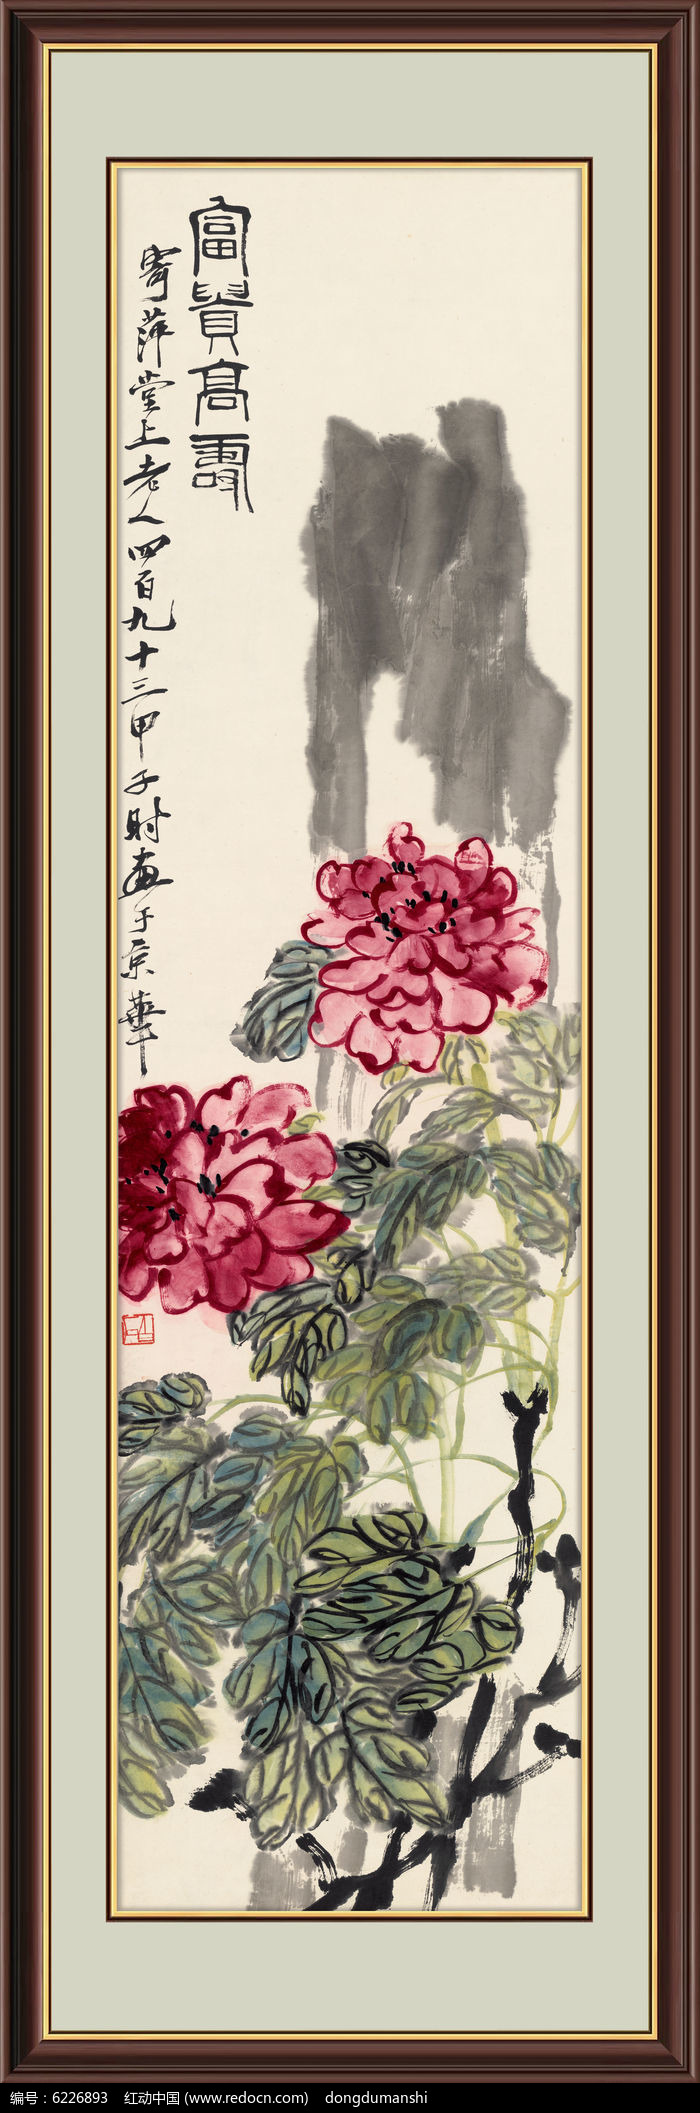 富貴高壽
寄萍堂上老人四百九十三甲子時畫于京華
编号：6226893 红动中国 (www.redocn.com) dongdumanshi